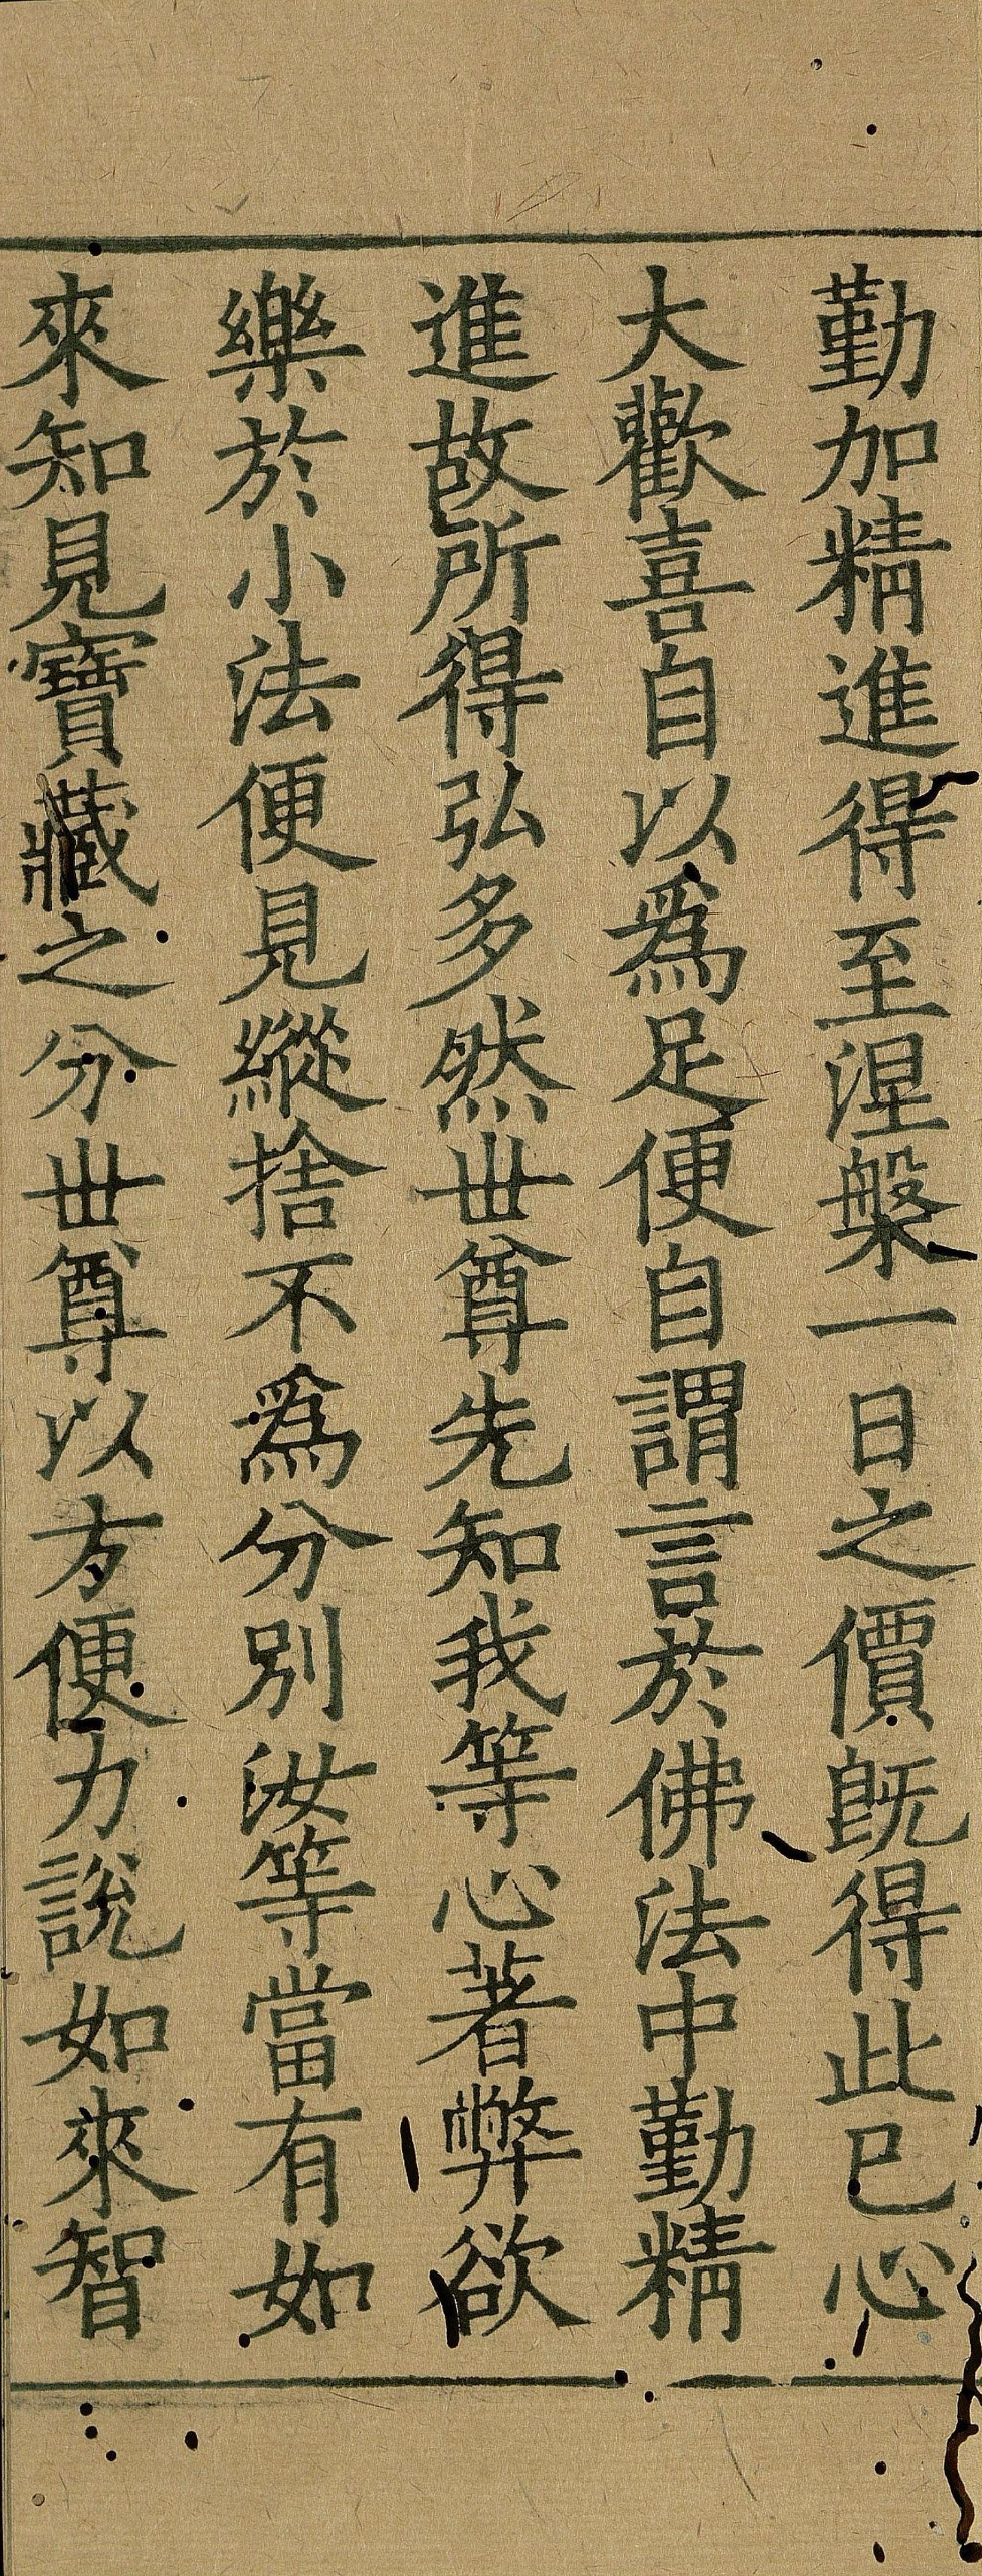 勤加精進得至涅槃一日之價既得此已心
大歡喜自以為足便自謂言於佛法中勤精
進故所得弘多然丗尊先知我等心著弊欲
樂於小法便見縱捨不為分別汝等當有如
來知見寶藏之分丗尊以方便力說如來智